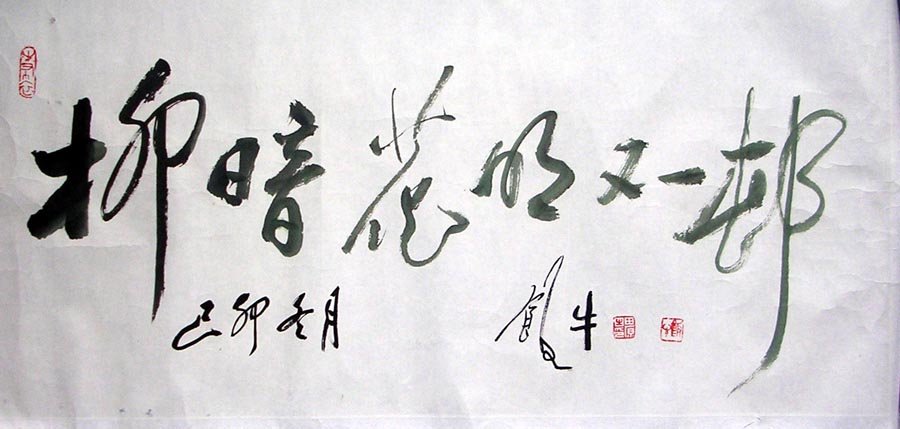 柳暗花明又一邨
己卯冬月
牛